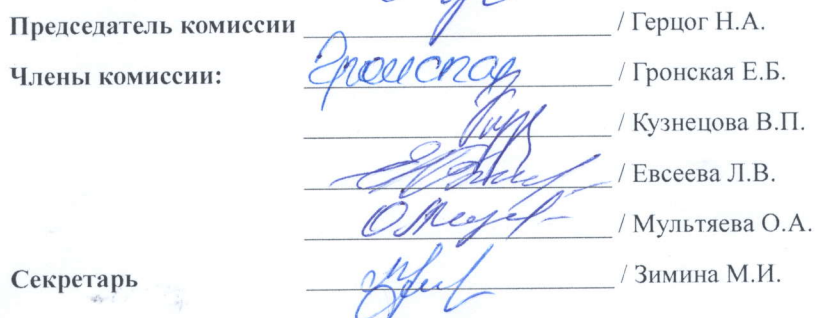 Председатель комиссии / Герцог Н.А.
Члены комиссии: / Гронская Е.Б.
/ Кузнецова В.П.
/ Евсеева Л.В.
/ Мультяева О.А.
Секретарь / Зимина М.И.